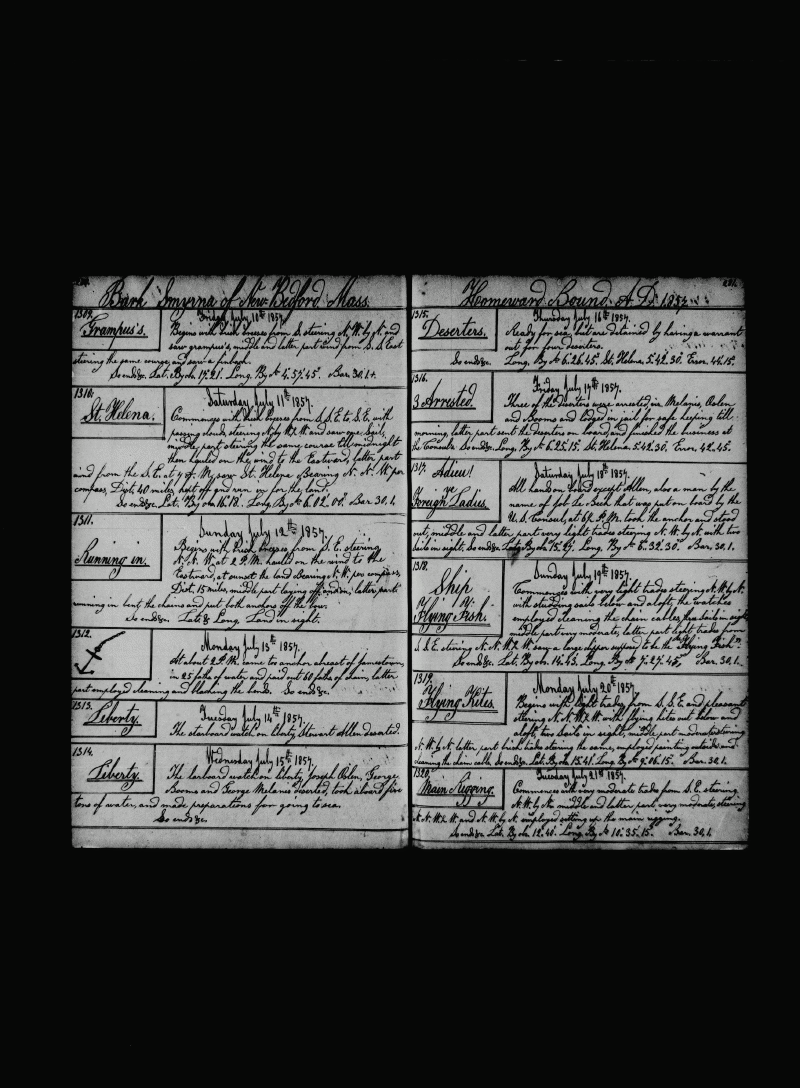 Bark Smyrna of New Bedford Mass.
1309.
Grampus's.
Friday July 10th 1857.
Begins with brisk breezes from S. steering N. W. by N. and
saw grampus's, middle and latter part wind from S. S. East
steering the same course, and saw a finback.
So ends&c. Lat. By ob. 17.21. Long. By A 4.57.45. Bar. 30.1.
1310.
St. Helena.
Saturday July 11th 1857.
Commences with brisk breezes from S. S. E. to S. E. with
passing clouds, steering N. by W. & W. and saw one sail,
middle part steering the same course till midnight
then hauled on the wind to the Eastward, latter part
wind from the S. E. at 7 A. M. saw St. Helena Bearing N. N. W. per
compass, Dist, 40 miles, kept off and run in for the land.
So ends&c. Lat. By ob. 16.18. Long. By A 6.02.00. Bar. 30.1.
1311.
Running in.
Sunday July 12th 1857.
Begins with brisk breezes from S. E. steering
N. N. W. at 2 P. M. hauled on the wind to the
Eastward, at sunset the land Bearing N. W. per compass,
Dist, 15 miles, middle part laying off and in, latter part
running in bent the chains and put both anchors off the bow.
So ends&c. Lat. & Long. Land in sight.
1312.
Monday July 13th 1857.
At about 2 P. M. came to anchor abreast of Jamestown,
in 25 foths of water and paid out 60 foths of chain, latter
part employed cleaning and blacking the bends. So ends&c.
1313.
Liberty.
Tuesday July 14th 1857.
The starboard watch on liberty Stewart Allen deserted.
1314.
Liberty.
Wednesday July 15th 1857.
The larboard watch on liberty, Joseph Odlen, George
Booms and George Melanie deserted, took aboard five
tons of water, and made preparations for going to sea.
So ends &c.
281.
Homeward Bound. A. D. 1857.
1315.
Deserters.
Thursday July 16th 1857.
Ready for sea, but are detained by having a warrant
out for four deserters.
So ends&c. Long. By A 6.26.45. St. Helena. 5.42.30. Error. 44.15.
1316.
3 Arrested.
Friday July 17th 1857.
Three of the deserters were arrested viz. Melanie, Odlen
and Booms and lodged in jail for safe keeping till
morning, latter part sent the deserters on board and finished the business at
the Consuls. So ends&c. Long. By A 6.25.15. St. Helena. 5.42.30. Error. 42.45.
1317.
Adieu!
Foreign Ladies.
Saturday July 18th 1857.
All hands on board except Allen, also a man by the
name of Job Le Bech that was put on board by the
U. S. Consul, at 6½ P. M. took the anchor and stood
out, middle and latter part very light trades steering N. W. by N. with two
sails in sight. So ends&c. Lat. By ob. 15.27. Long. By A 6.32.30. Bar. 30.1.
1318.
Ship
Flying Fish.
Sunday July 19th 1857.
Commences with very light trades steering N. W. by N.
with studding sails below and aloft, the watches
employed cleaning the chain cables, two sails in sight,
middle part very moderate, latter part light trades from
S. S. E. steering N. N. W. & W. saw a large clipper suppose to be the "Flying Fish".
So ends&c. Lat. By ob. 14.43. Long. By A 7.27.45. Bar. 30.1.
1319.
Flying Kites.
Monday July 20th 1857.
Begins with light trades from S. S. E. and pleasant
steering N. N. W. & W. with flying kites out below and
aloft, two sails in sight, middle part moderate steering
N. W. by N. latter part brisk trades steering the same, employed painting outside and
cleaning the chain cable. So ends&c. Lat. By ob. 13.41. Long. By A 9.06.15. Bar. 30.1.
1320.
Main Rigging.
Tuesday July 21st 1857.
Commences with very moderate trades from S. E. steering
N. W. by N. middle and latter part very moderate, steering
N. N. W. & W. and N. W. by N. employed setting up the main rigging.
So ends&c. Lat. By ob. 12.40. Long. By A 10.35.15. Bar. 30.1.